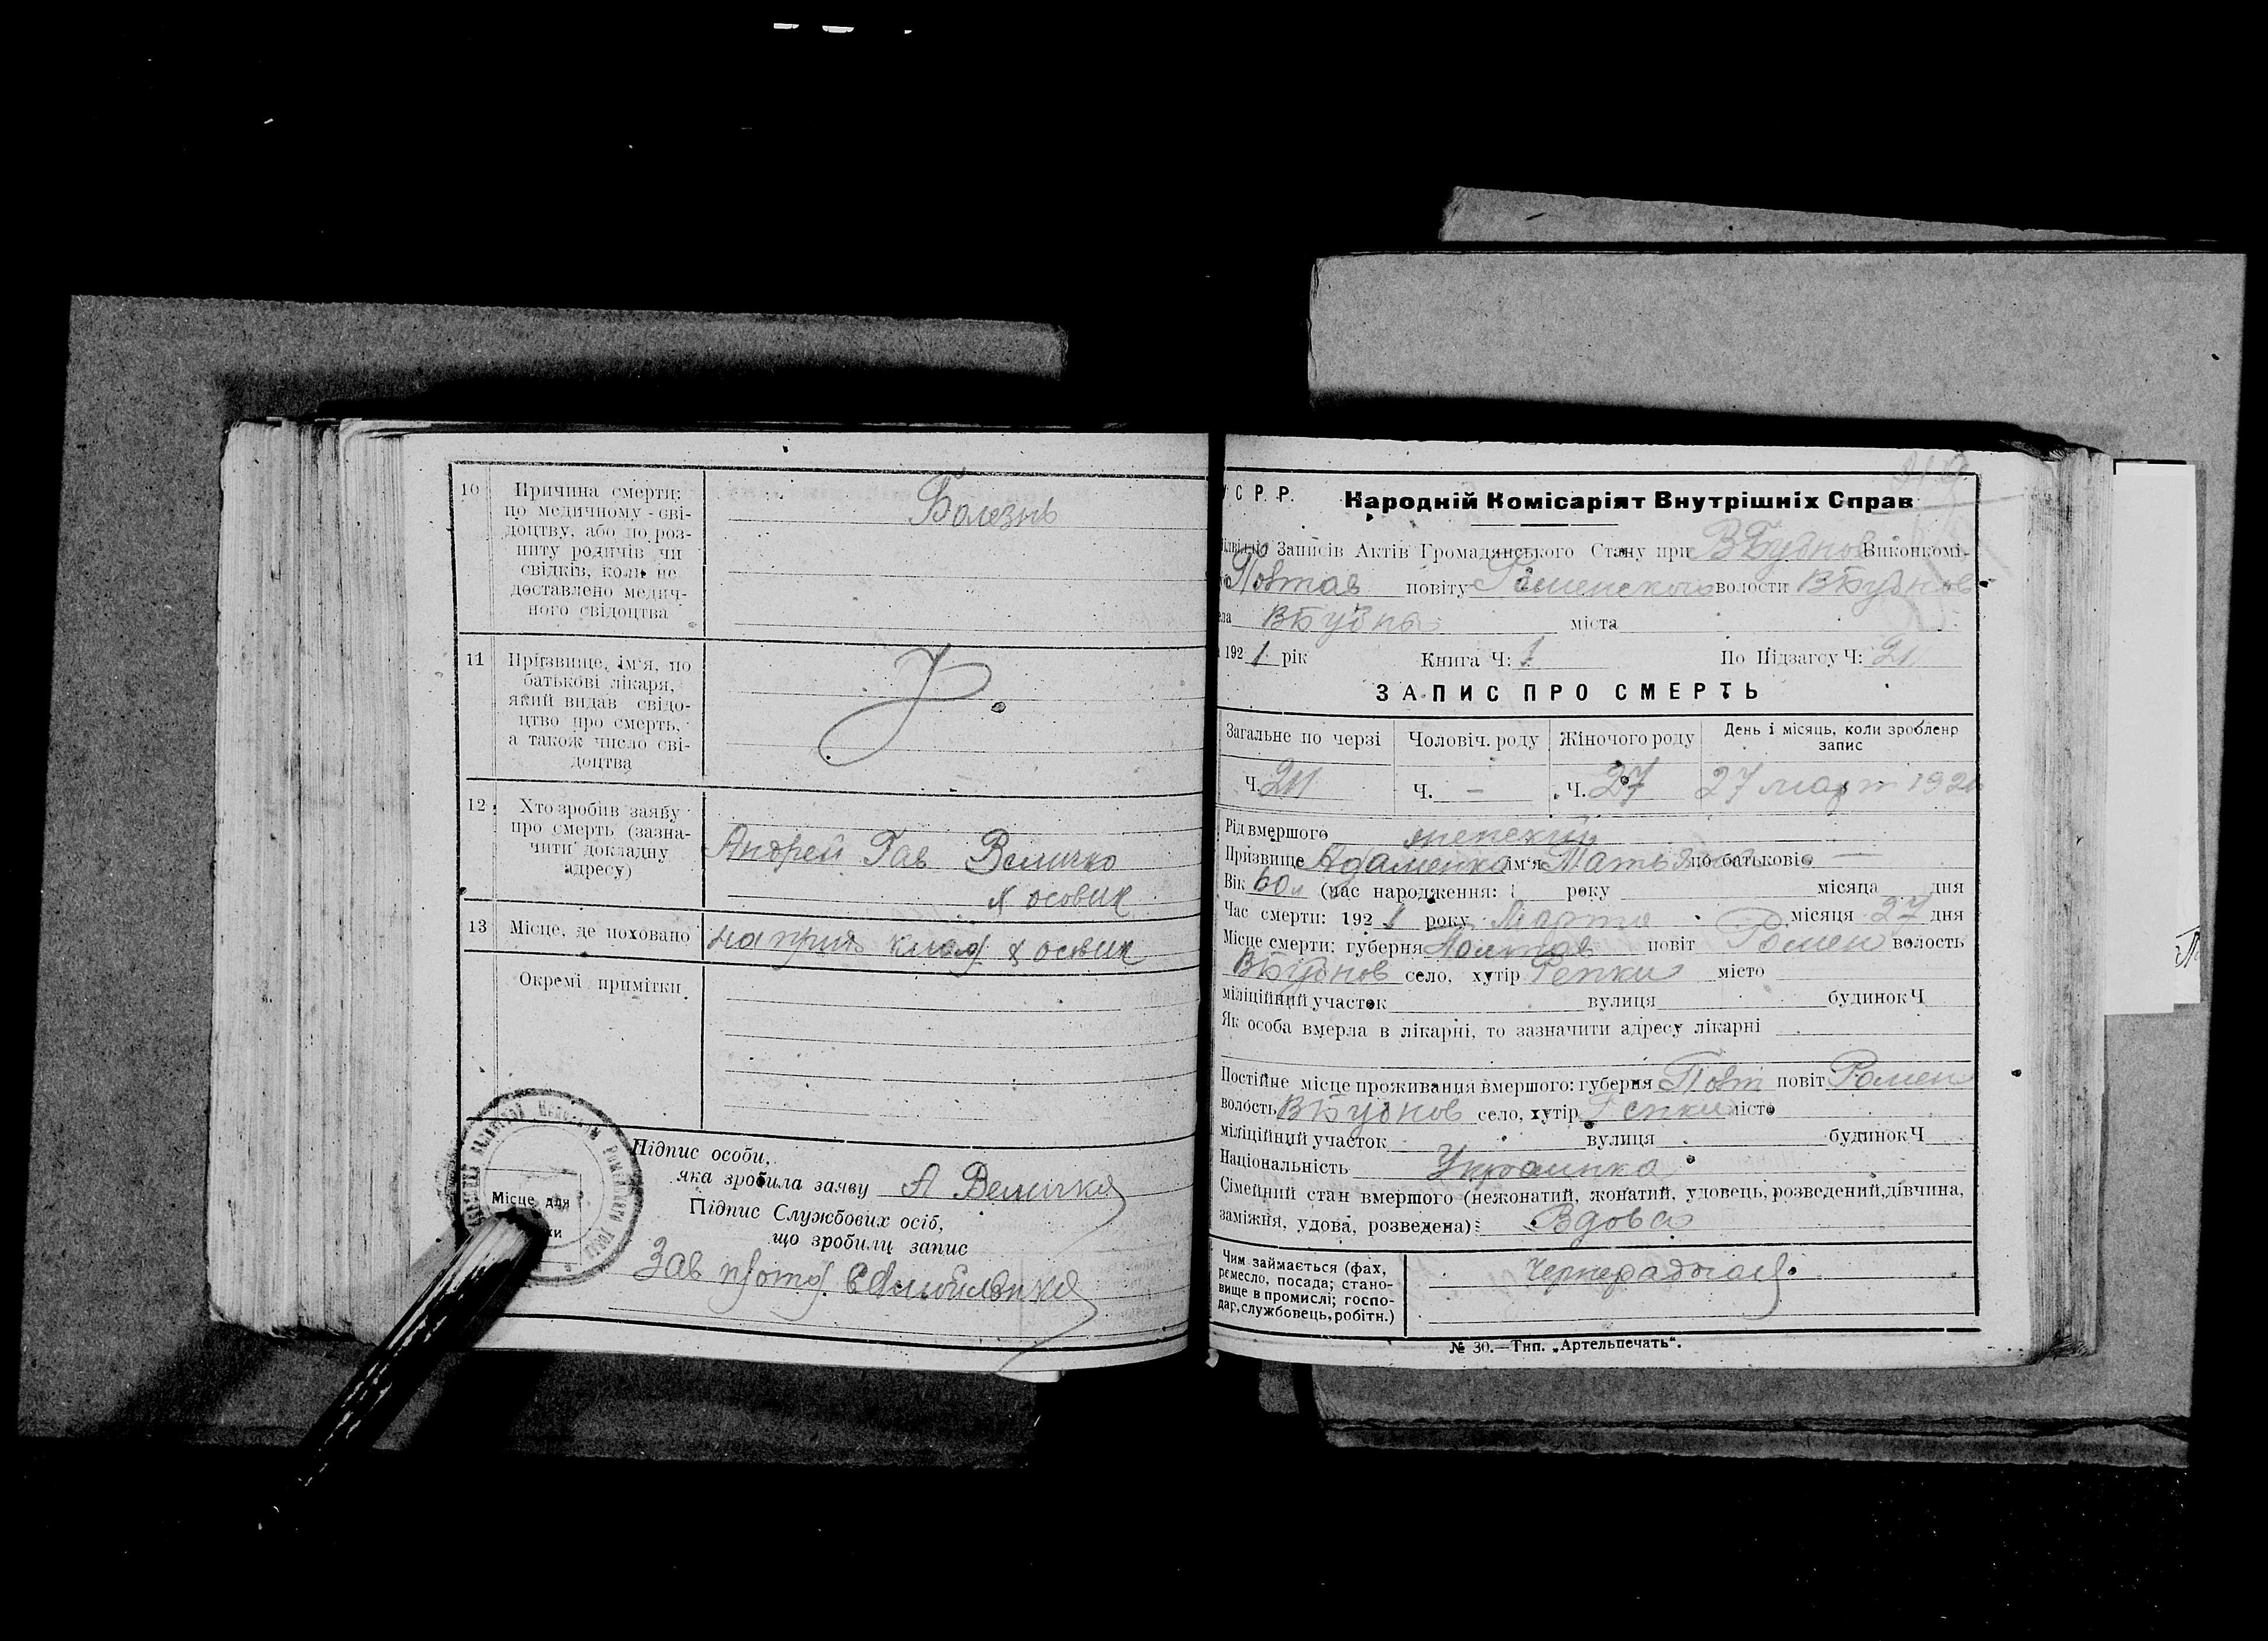 10 Причина смерти: Болезнь
по медичному сві-
доцтву, або по роз-
питу родичів чи
свідків, коли не
доставлено медич-
ного свідоцтва
11 Прізвище, ім'я, по
батькові лікаря,
який видав свідо-
цтво про смерть,
а також число сві-
доцтва
12 Хто зробив заяву
про смерть (зазна-
чити докладну Андрей Гав Величко
адресу)
13 Місце, де поховано
Окремі примітки
Підпис особи,
яка зробила заяву А Величко
Підпис Службових осіб,
що зробили запис
Зав
Місце для
С. Р. Р. Народній Комісаріят Внутрішніх Справ
Записів Актів Громадянського Стану при ВБубнов Виконкомі-
Полтав повіту Роменского волости ВБубнов
ВБубны міста
1921 рік Книга Ч: 1 По Підзагсу Ч:
ЗАПИС ПРО СМЕРТЬ
Загальне по черзі Чоловіч. роду Жіночого роду День і місяць, коли зроблено
запис
Ч. Ч. — Ч. 27 27 март 192
Рід вмершого женский
Призвище Адаменко ім'я Татьяна по батькові —
Вік 60 л (час народження: 1 року місяця дня
Час смерти: 1921 року Марта місяця 27 дня
Місце смерти: губерня Полтав повіт Ромен волость
ВБубнов село, хутір Репки місто
міліційний участок вулиця будинок Ч
Як особа вмерла в лікарні, то зазначити адресу лікарні
Постійне місце проживання вмершого: губерня Полт повіт Ромен
волость ВБубнов село, хутір Репки місто
міліційний участок вулиця будинок Ч
Національність Украинка
Сімейний стан вмершого (нежонатий, жонатий, удовець, розведений, дівчина,
заміжня, удова, розведена): Вдова
Чим займається (фах,
ремесло, посада; стано-
вище в промислі; госпо-
дар, службовець, робітн.)
№ 30.—Тип. „Артельпечать“.